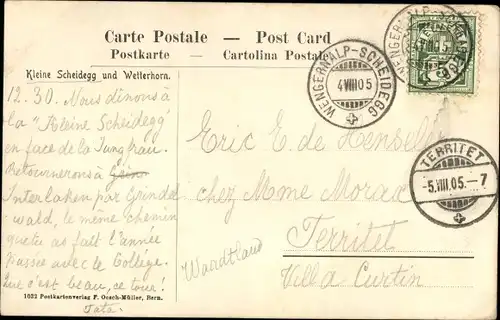 Carte Postale — Post Card
Postkarte — Cartolina Postale
Kleine Scheidegg und Wetterhorn.
WENGERNALP-SCHEIDEGG
4 VIII 05
HELVETIA
12.30. Nous dînons à
la "Kleine Scheidegg"
en face de la Jungfrau.
Retournerons à
Interlaken par Grindel
wald, le même chemin
que tu as fait l'année
passée avec le Collège.
Que c'est beau, ce tour!
Tata.
Eric E. de Henseler
chez Mme Morax
Territet
Villa Curtin
Waadtland
TERRITET
-5.VIII.05.-7
1022 Postkartenverlag F. Oesch-Müller, Bern.